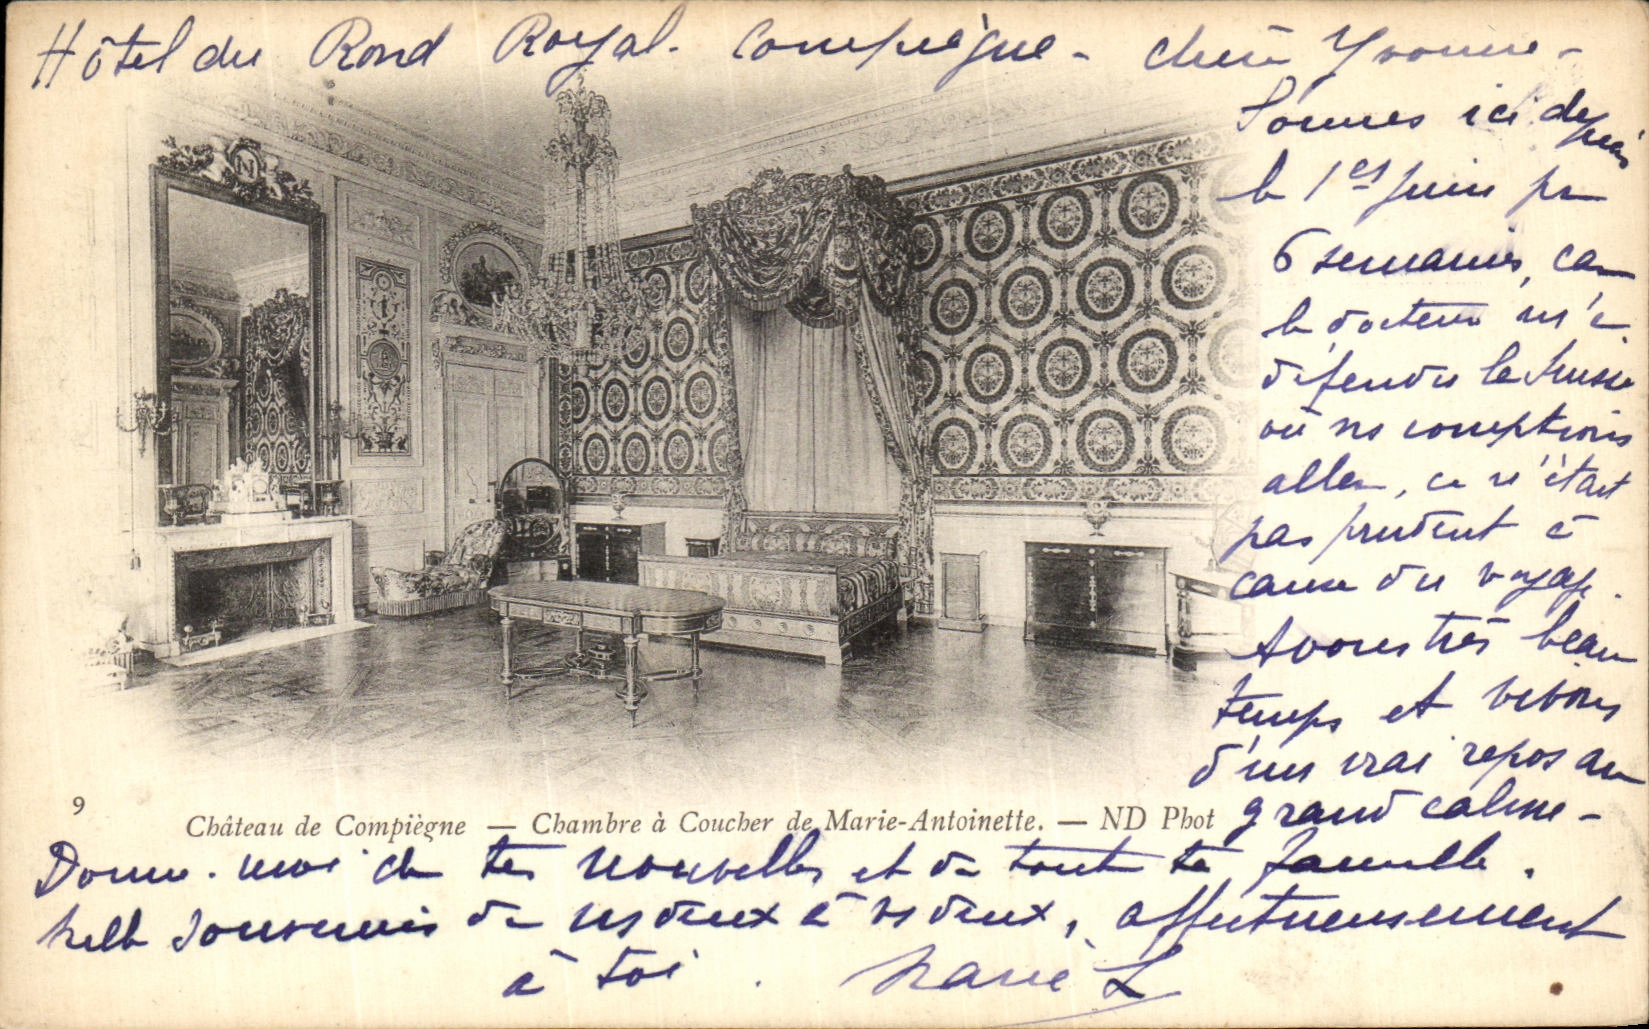 Hôtel du Rond Royal. Compiègne - chère Yvonne -
Sommes ici depuis
le 1er Juin pr
6 semaines, car
le docteur m'a
défendu la Suisse
où ns comptions
aller, ce n'était
pas prudent à
cause du voyage.
Avons très beau
temps et vivons
d'un vrai repos au
grand calme -
9
Château de Compiègne — Chambre à Coucher de Marie-Antoinette. — ND Phot
Donne-moi de tes nouvelles et de toute ta famille.
Mille souvenirs de ns deux à vs deux, affectueusement
à toi. Marie L